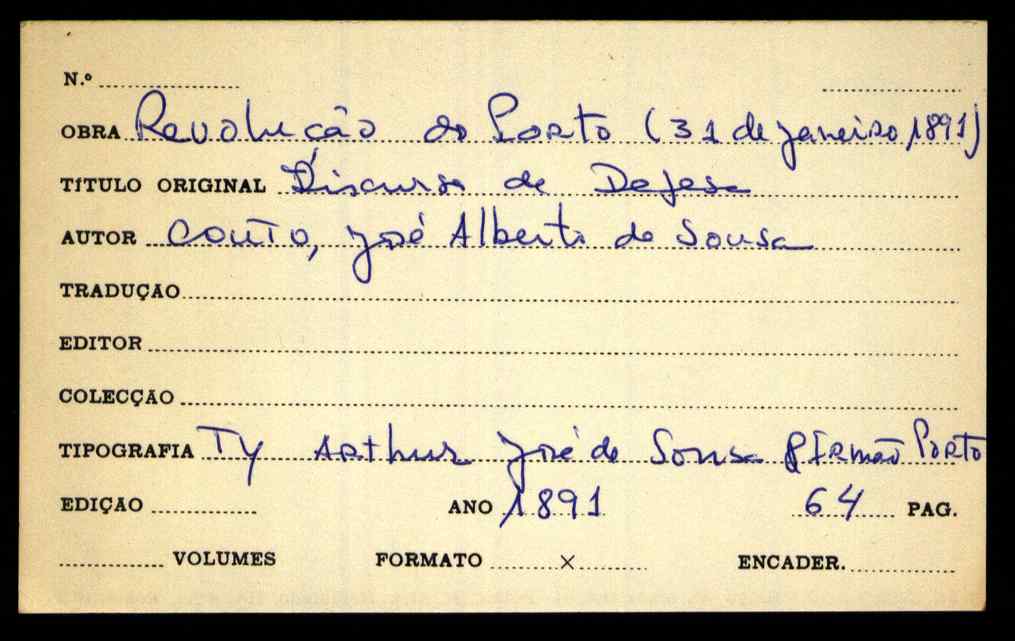 N.º
OBRA Revolução do Porto (31 de janeiro, 1891)
TÍTULO ORIGINAL Discurso de Defesa
AUTOR COUTO, José Alberto de Sousa
TRADUÇÃO
EDITOR
COLECÇÃO
TIPOGRAFIA Ty Arthur José de Sousa & Irmão Porto
EDIÇÃO ANO 1891 64 PAG.
VOLUMES FORMATO × ENCADER.